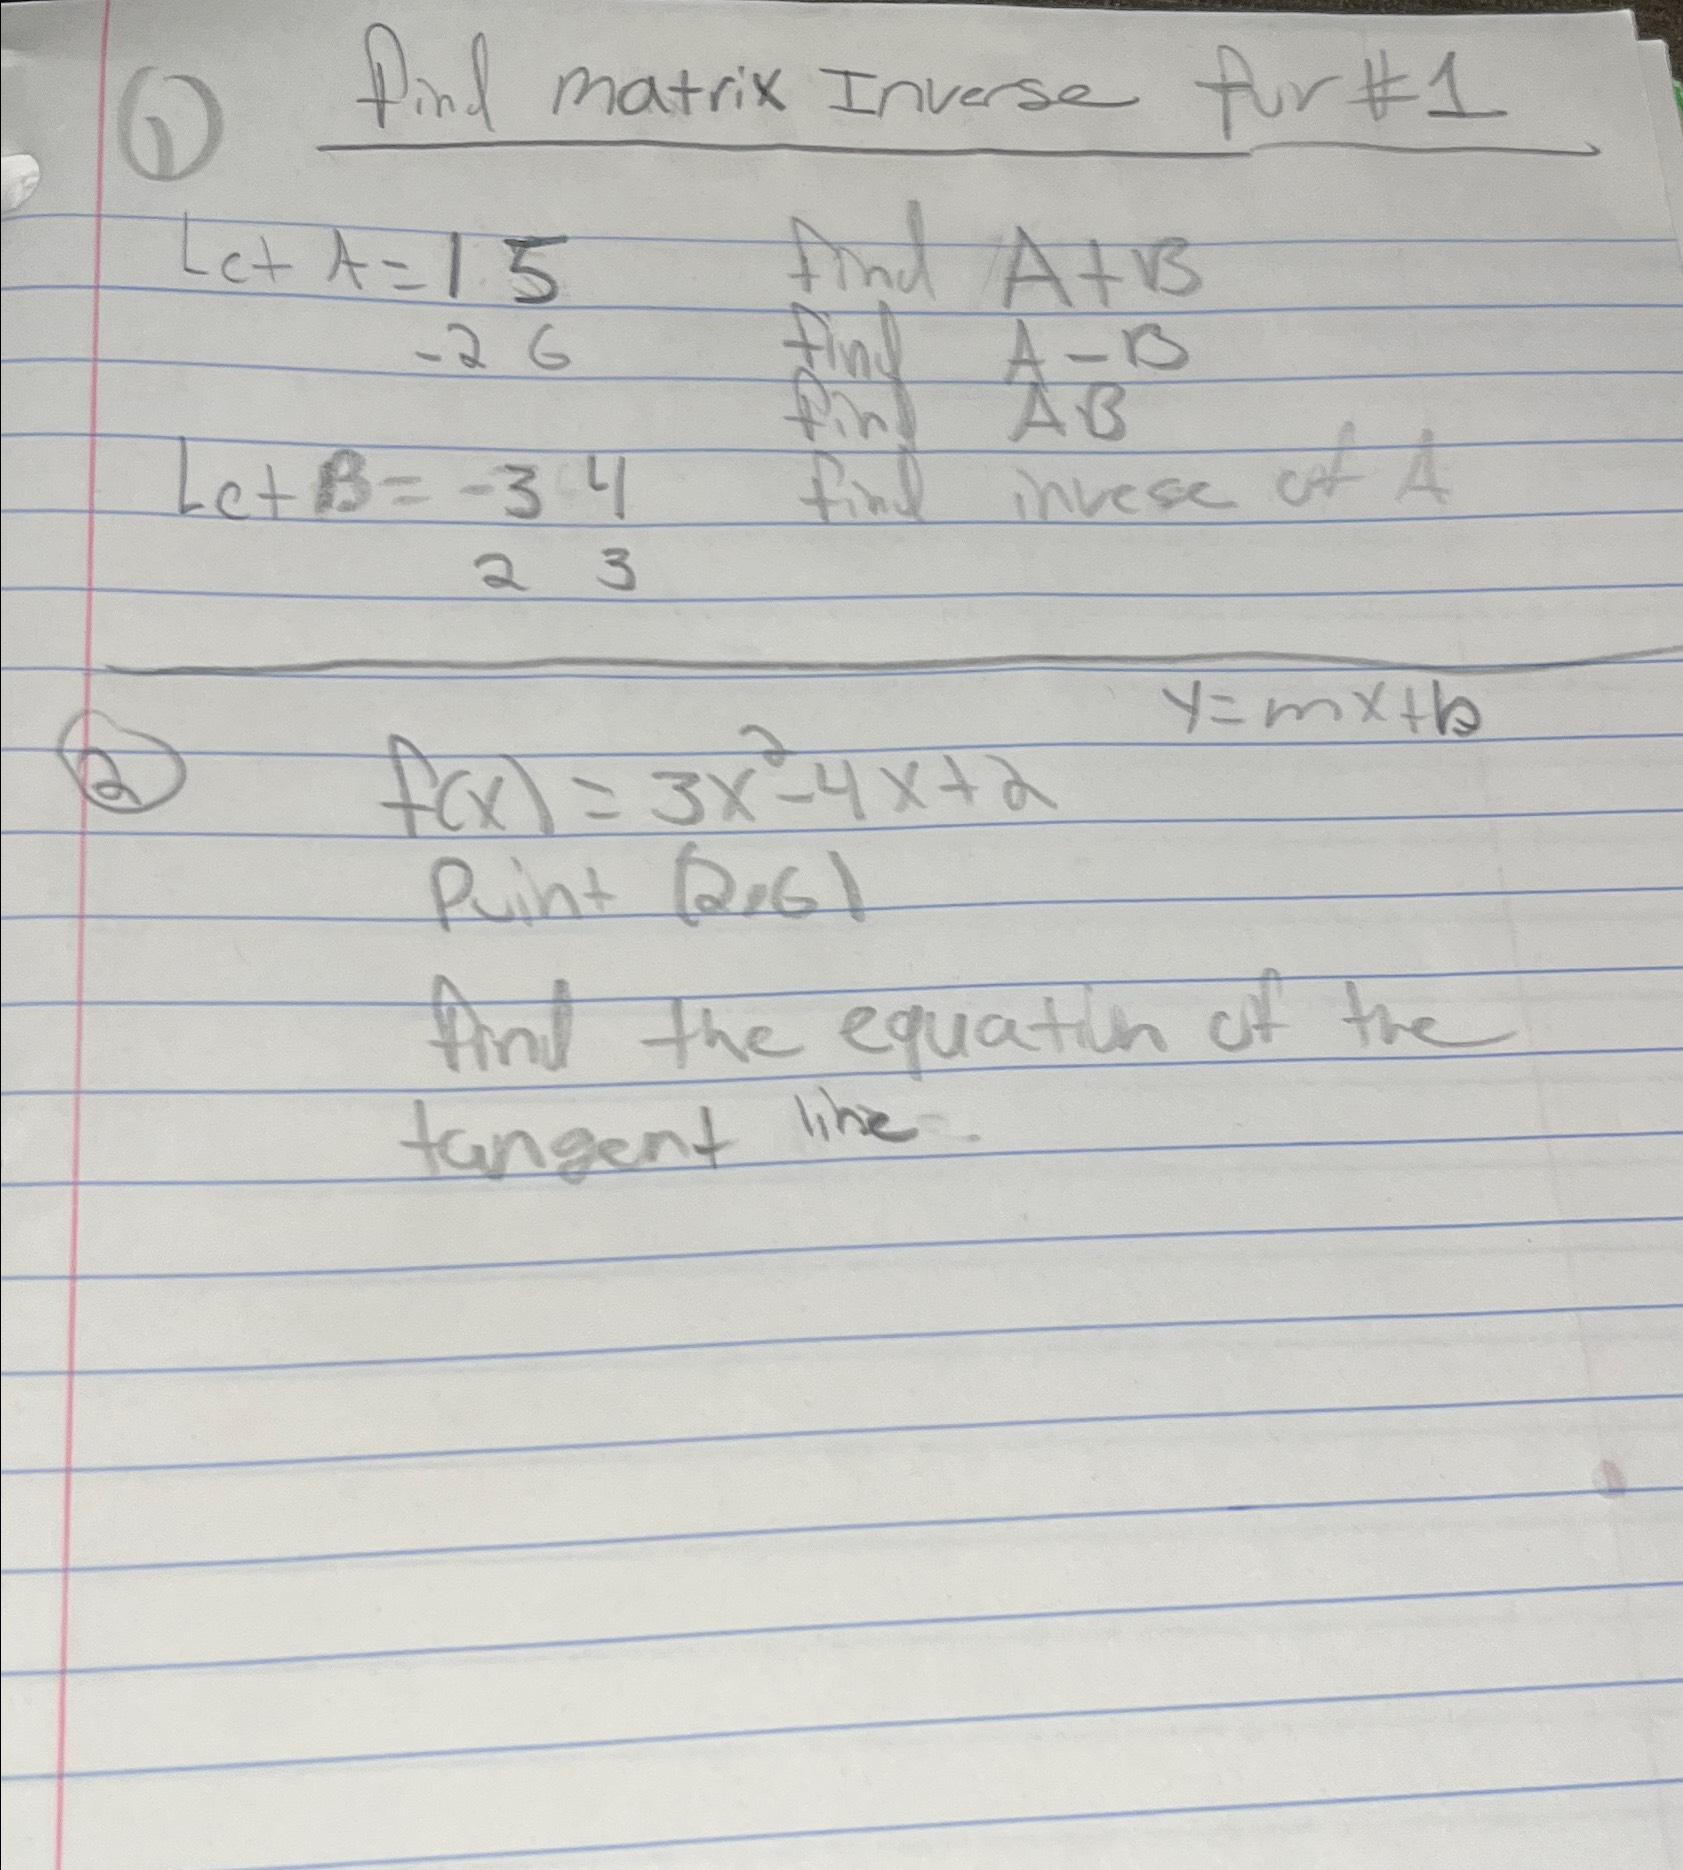 ① find matrix Inverse for #1
Let A = 1 5 find A+B
-2 6 find A-B
find AB
Let B = -3 4 find invese of A
2 3
y=mx+b
② f(x) = 3x²-4x+2
Point (2,6)
find the equation of the
tangent line.